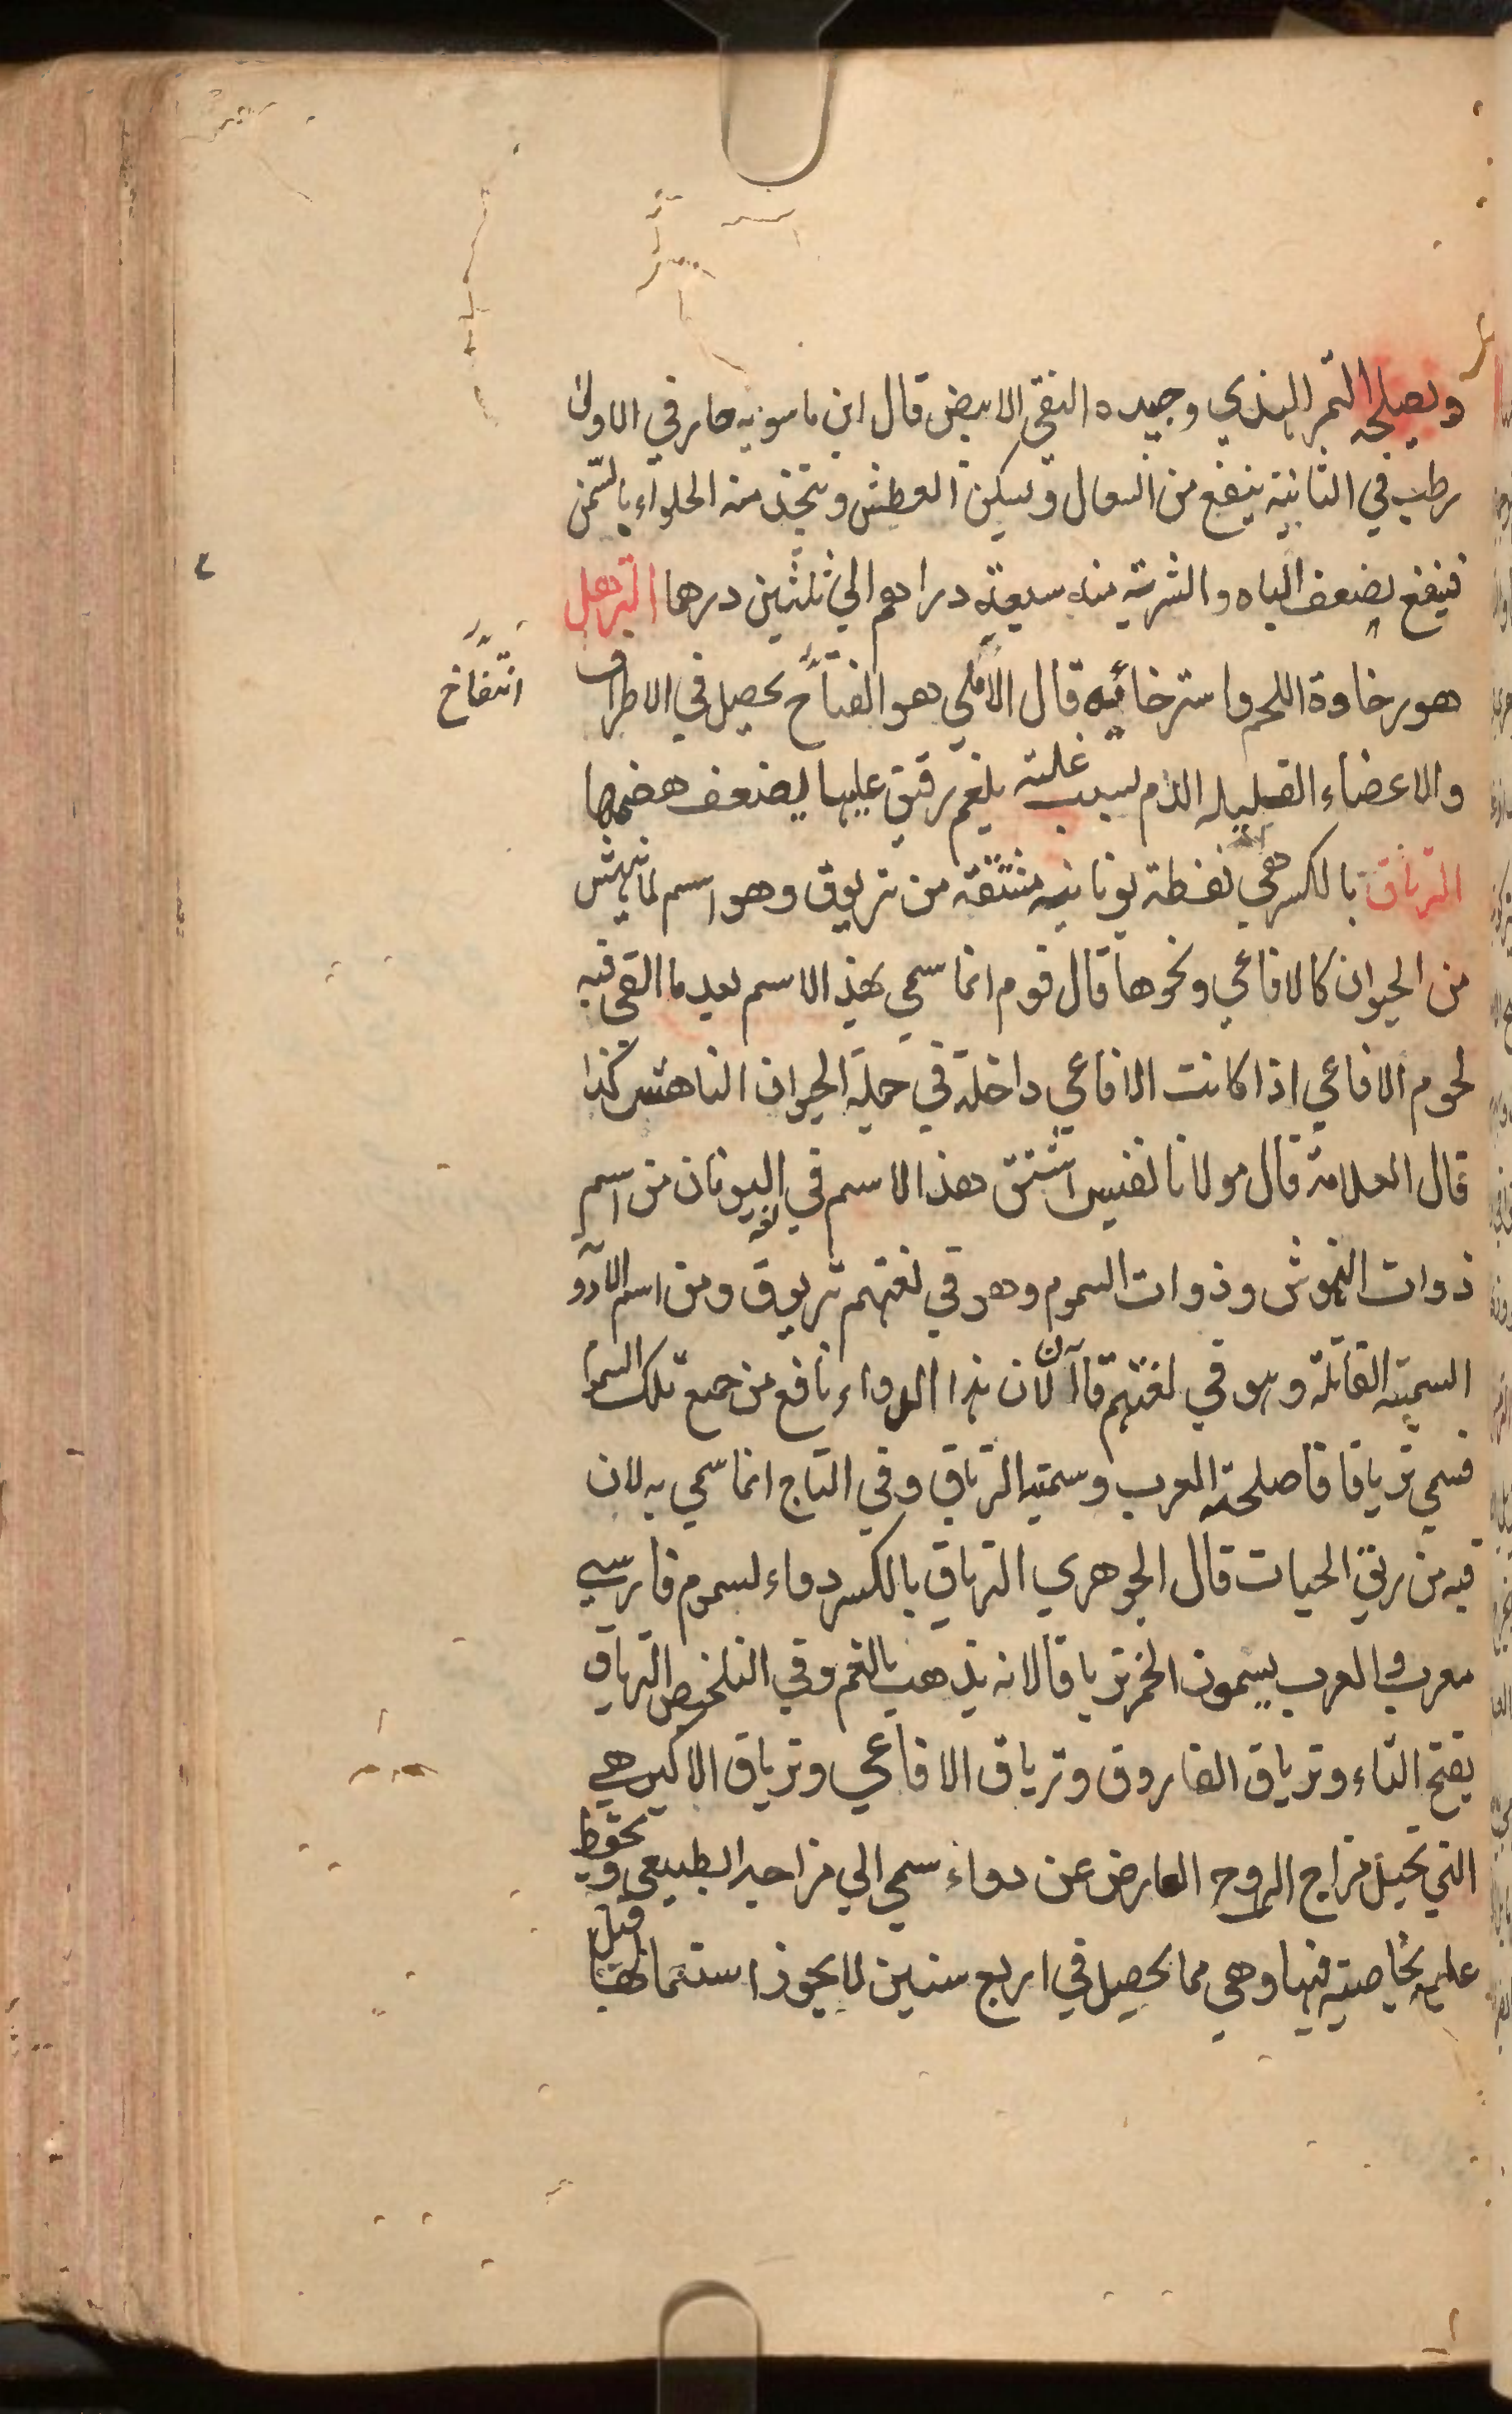 ويصلحه التمر الهندي وجيده النقي الابيض قال ابن ماسويه حار في الاولى
رطب في الثانية ينفع من السعال ويسكن العطش ويتخذ منه الحلواء بالسمن
فينفع بضعف الباه والشربة منه سبعة دراهم الي ثلثين درهما الترهل
هو رخاوة اللحم واسترخائيه قال الاملي هو انفتاح يحصل في الاطراف
انتفاخ
والاعضاء القليله الدم لسبب غلبته بلغم رقيق عليها لضعف هضمها
الترياق بالكسر هي لفظة يونانيه مشتقة من تريوق وهو اسم لما ينهش
من الحيوان كالافاعي ونحوها قال قوم انما سمي بهذ الاسم بعد ما القي فيه
لحوم الافاعي اذا كانت الافاعي داخلة في جملة الحيوان الناهش كذا
قال العلامة قال مولانا نفيس اشتق هذا الاسم في لغه اليونان من اسم
ذوات النهوش وذوات السموم وهو في لغتهم تريوق ومن اسم الادو
السمية القاتلة وهو في لغتهم قاآ لان هذا الدواء نافع من جميع تلك السموم
فسمي ترياقا فاصلحته العرب وسمته الترياق وفي التاج انما سمي به لان
فيه من ريق الحيات قال الجوهري الترياق بالكسر دواء لسموم فارسي
معرب والعرب يسمون الخمر ترياقا لانه يذهب بالغم وفي التلخيص الترياق
بفتح التاء وترياق الفاروق وترياق الافاعي وترياق الاكبر هي
التي تحيل مزاج الروح العارض عن دواء سمي الي مزاجه الطبيعي ويحفظ
عليه بخاصية فيها وهي مما يحصل في اربع سنين لا يجوز استعمالها قبل